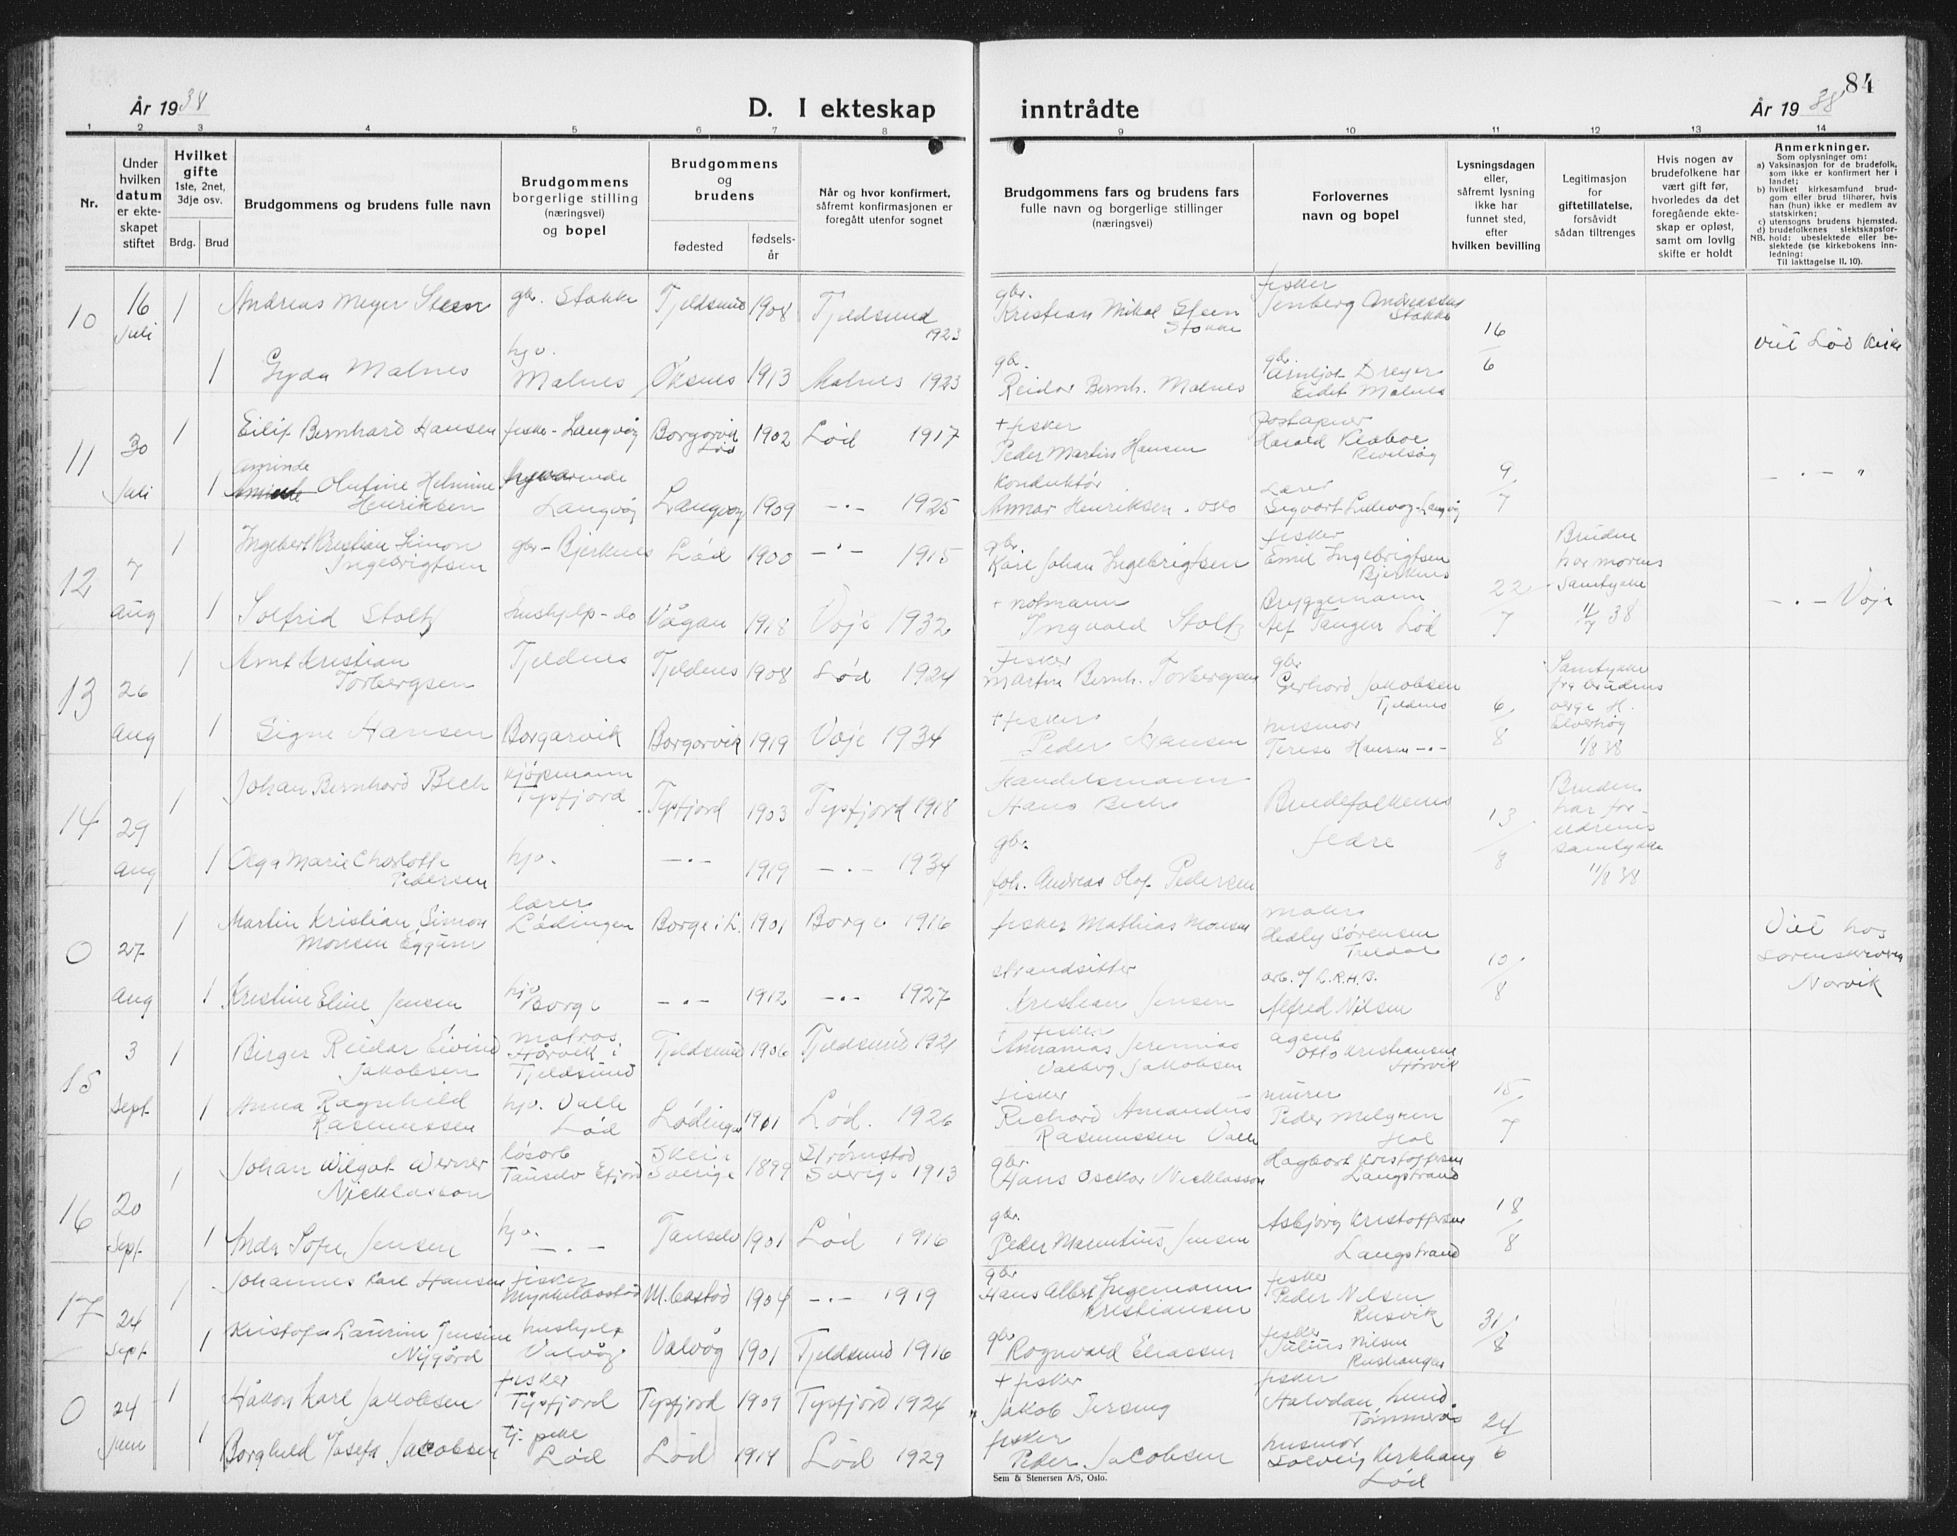 84
År 1938
D. I ekteskap inntrådte
År 1938
1 2 3 4 5 6 7 8 9 10 11 12 13 14
Nr.
Under hvilken datum er ekteskapet stiftet
Hvilket gifte 1ste, 2net, 3dje osv.
Brdg. Brud
Brudgommens og brudens fulle navn
Brudgommens borgerlige stilling (næringsvei) og bopel
Brudgommens og brudens
fødested
fødselsår
Når og hvor konfirmert, såfremt konfirmasjonen er foregått utenfor sognet
Brudgommens fars og brudens fars fulle navn og borgerlige stillinger (næringsvei)
Forlovernes navn og bopel
Lysningsdagen eller, såfremt lysning ikke har funnet sted, efter hvilken bevilling
Legitimasjon for giftetillatelse, forsåvidt sådan tiltrenges
Hvis nogen av brudefolkene har vært gift før, hvorledes da det foregående ekteskap er opløst, samt om lovlig skifte er holdt
Anmerkninger.
Som oplysninger om:
a) Vaksinasjon for de brudefolk, som ikke er konfirmert her i landet;
b) hvilket kirkesamfund brudgom eller brud tilhører, hvis han (hun) ikke er medlem av statskirken;
c) utensogns brudens hjemsted.
d) brudefolkenes slektskapsforhold: ubeslektede eller beslektede (se kirkebokens innledning:
NB.
Til iakttagelse II, 10).
10 16 Juli 1 Andreas Meyer Steen gbr. Stokke Tjeldsund 1908 Tjeldsund 1923 gbr. Kristian Mikal Steen Stokke fisker Jenberg Andreassen Stokke 16/6 viet Lød kirke
1 Gyda Malnes hjv. Malnes Øksnes 1913 Malnes 1923 gbr. Reidar Bernh. Malnes gbr. Arnljot Dreyer Eidet Malnes
11 30 Juli 1 Eilif Bernhard Hansen fisker - Langvåg Borgarvik Lød 1902 Lød 1917 + fisker Peder Martin Hansen Poståpner Harald Kræboe 9/7 - . - "
1 Aminde Olufine Helmine Henriksen hjvarende Langvåg Langvåg 1909 - . - 1925 Konduktør Annar Henriksen. Oslo Lærer Sigvart
12 7 aug 1 Ingebert Kristian Simon Ingebrigtsen gbr - Bjerknes Lød 1900 - " - 1915 gbr. Karl Johan Ingebrigtsen fisker Emil Ingebrigtsen Bjerknes 22/7 Bruden har morens samtykke 11/7 38 - . - Voje
1 Solfrid Stoltz hushjelp - do Vågan 1918 Voje 1932 + notmann Ingvald Stoltz Bryggemann Alf Tangen Lød
13 26 aug 1 Arnt Kristian Torbergsen Tjeldnes Tjeldnes 1908 Lød 1924 fisker Martin Bernh. Torbergsen gbr Gerhard Jakobsen Tjeldnes 6/8 Samtykke fra brudens verge H. Elverhøg 1/8 38
1 Signe Hansen Borgarvik Borgarvik 1919 Voje 1934 + fisker Peder Hansen husmor Terese Hansen - . -
14 29 aug 1 Johan Bernhard Bech kjøpmann Tysfjord Tysfjord 1903 Tysfjord 1918 Handelsmann Hans Bech Brudefolkenes fedre 13/8 Bruden har foreldrenes samtykke 11/8 38
1 Olga Marie Charlotte Pedersen hjv. - . - 1919 - . - 1934 gbr. Joh. Andreas Olaf Pedersen
0 27 aug 1 Martin Kristian Simon Monsen Eggum lærer Lødingen Borge i L. 1901 Borge 1916 fisker Mathias Monsen maler Hedly Sørensen Treldal 10/8 Viet hos sorenskriveren Narvik
1 Kristine Eline Jensen hjv Borge - . - 1912 - . - 1927 strandsitter Kristian Jensen arb. v/ L.R.H.B. Alfred Nilsen
15 3 Sept 1 Birger Reidar Eivind Jakobsen matros Hårvik i Tjeldsund Tjeldsund 1906 Tjeldsund 1921 fisker Annanias Jeremias Valberg Jakobsen agent Otto Kristiansen Hårvik 15/7
1 Anna Ragnhild Rasmussen hjv. Valle Lød Lødingen 1901 Lød. 1926 fisker Richard Amandus Rasmussen Valle murer Peder Melgren Hol
16 20 Sept. 1 Johan Wilgot Werner Nicklasson løsarb Tanselv Efjord Skee i Sverige 1899 Strømstad Sverige 1913 gbr. Hans Oskar Nicklasson Hagbart Kristoffersen Langstrand 18/8
1 Anda Sofie Jensen hjv. - . - Tanselv 1901 Lød 1916 gbr. Peder Marentius Jensen Asbjørg Kristoffersen Langstrand
17 24 Sept 1 Johannes Karl Hansen fisker Myklebostad M.bostad 1904 - . - 1919 gbr Hans Albert Ingemann Kristiansen fisker Peder Nilsen Rusvik 31/8
1 Kristofa Laurine Jensine Nygård hushjelp Valvåg Valvåg 1901 Tjeldsund 1916 gbr Rognvald Eliassen fisker Julius Nilsen
0 24 Juni 1 Håkon Karl Jakobsen fisker Tysfjord Tysfjord 1909 Tysfjord 1924 + fisker Jakob fisker Halvdan Lund 24/6
1 Borghild Josefa Jacobsen tj. pike Lød Lød 1914 Lød 1929 fisker Peder Jacobsen husmor Solveig Kirkhaug Lød
Sem & Stenersen A/S, Oslo.